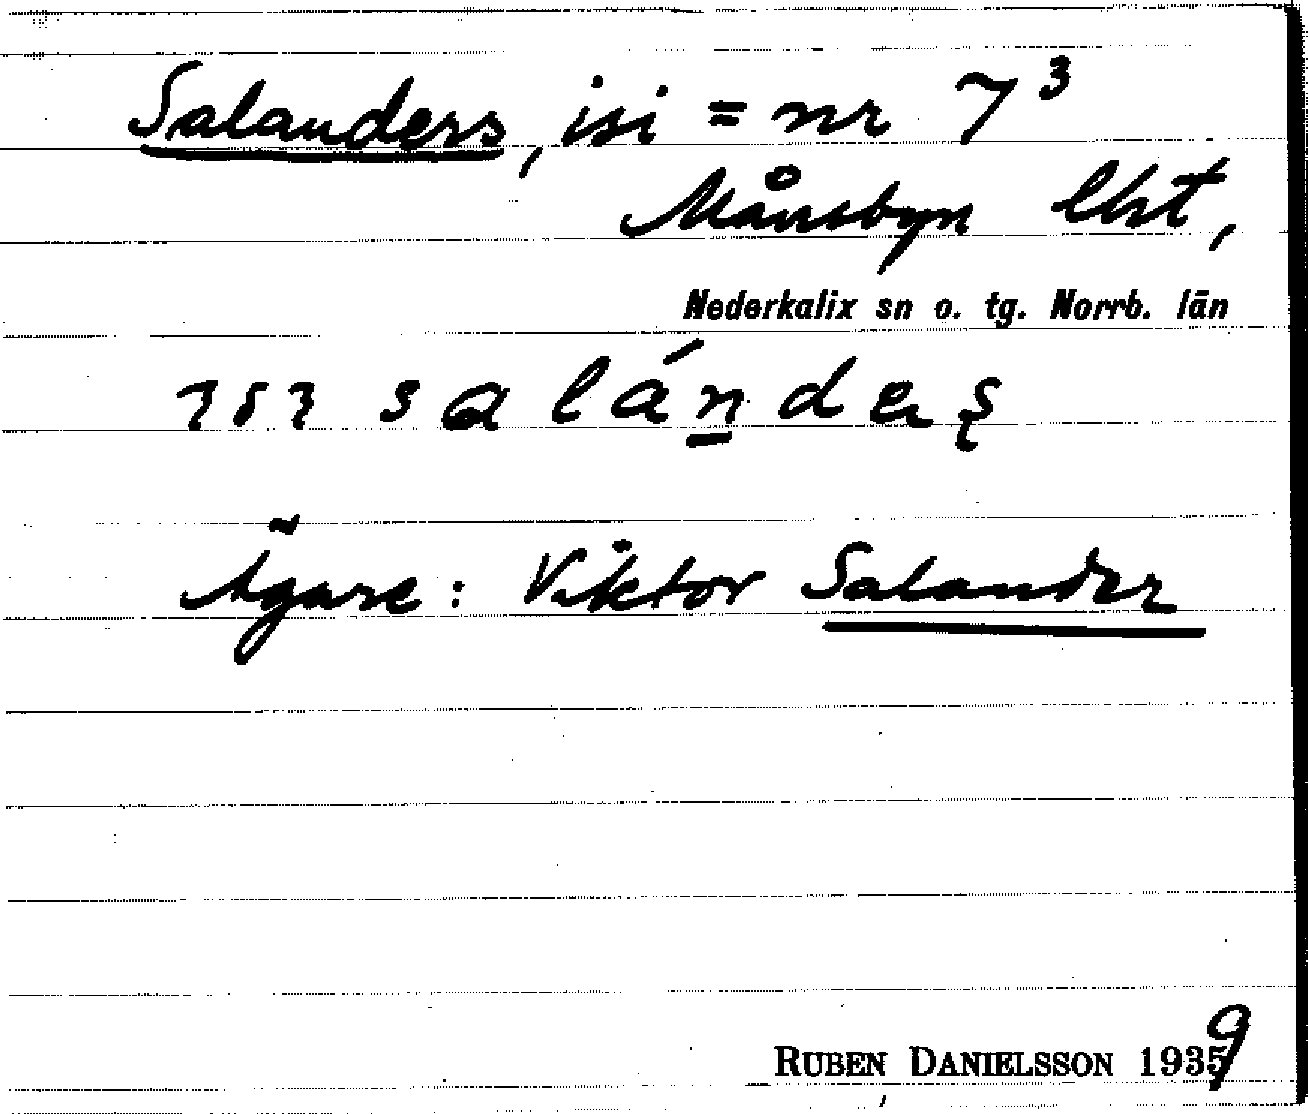 Salanders, isi = nr 7³
Månsbyn lht,
Nederkalix sn o. tg. Norrb. län
salándeş
Ägare: Viktor Salander
RUBEN DANIELSSON 1939